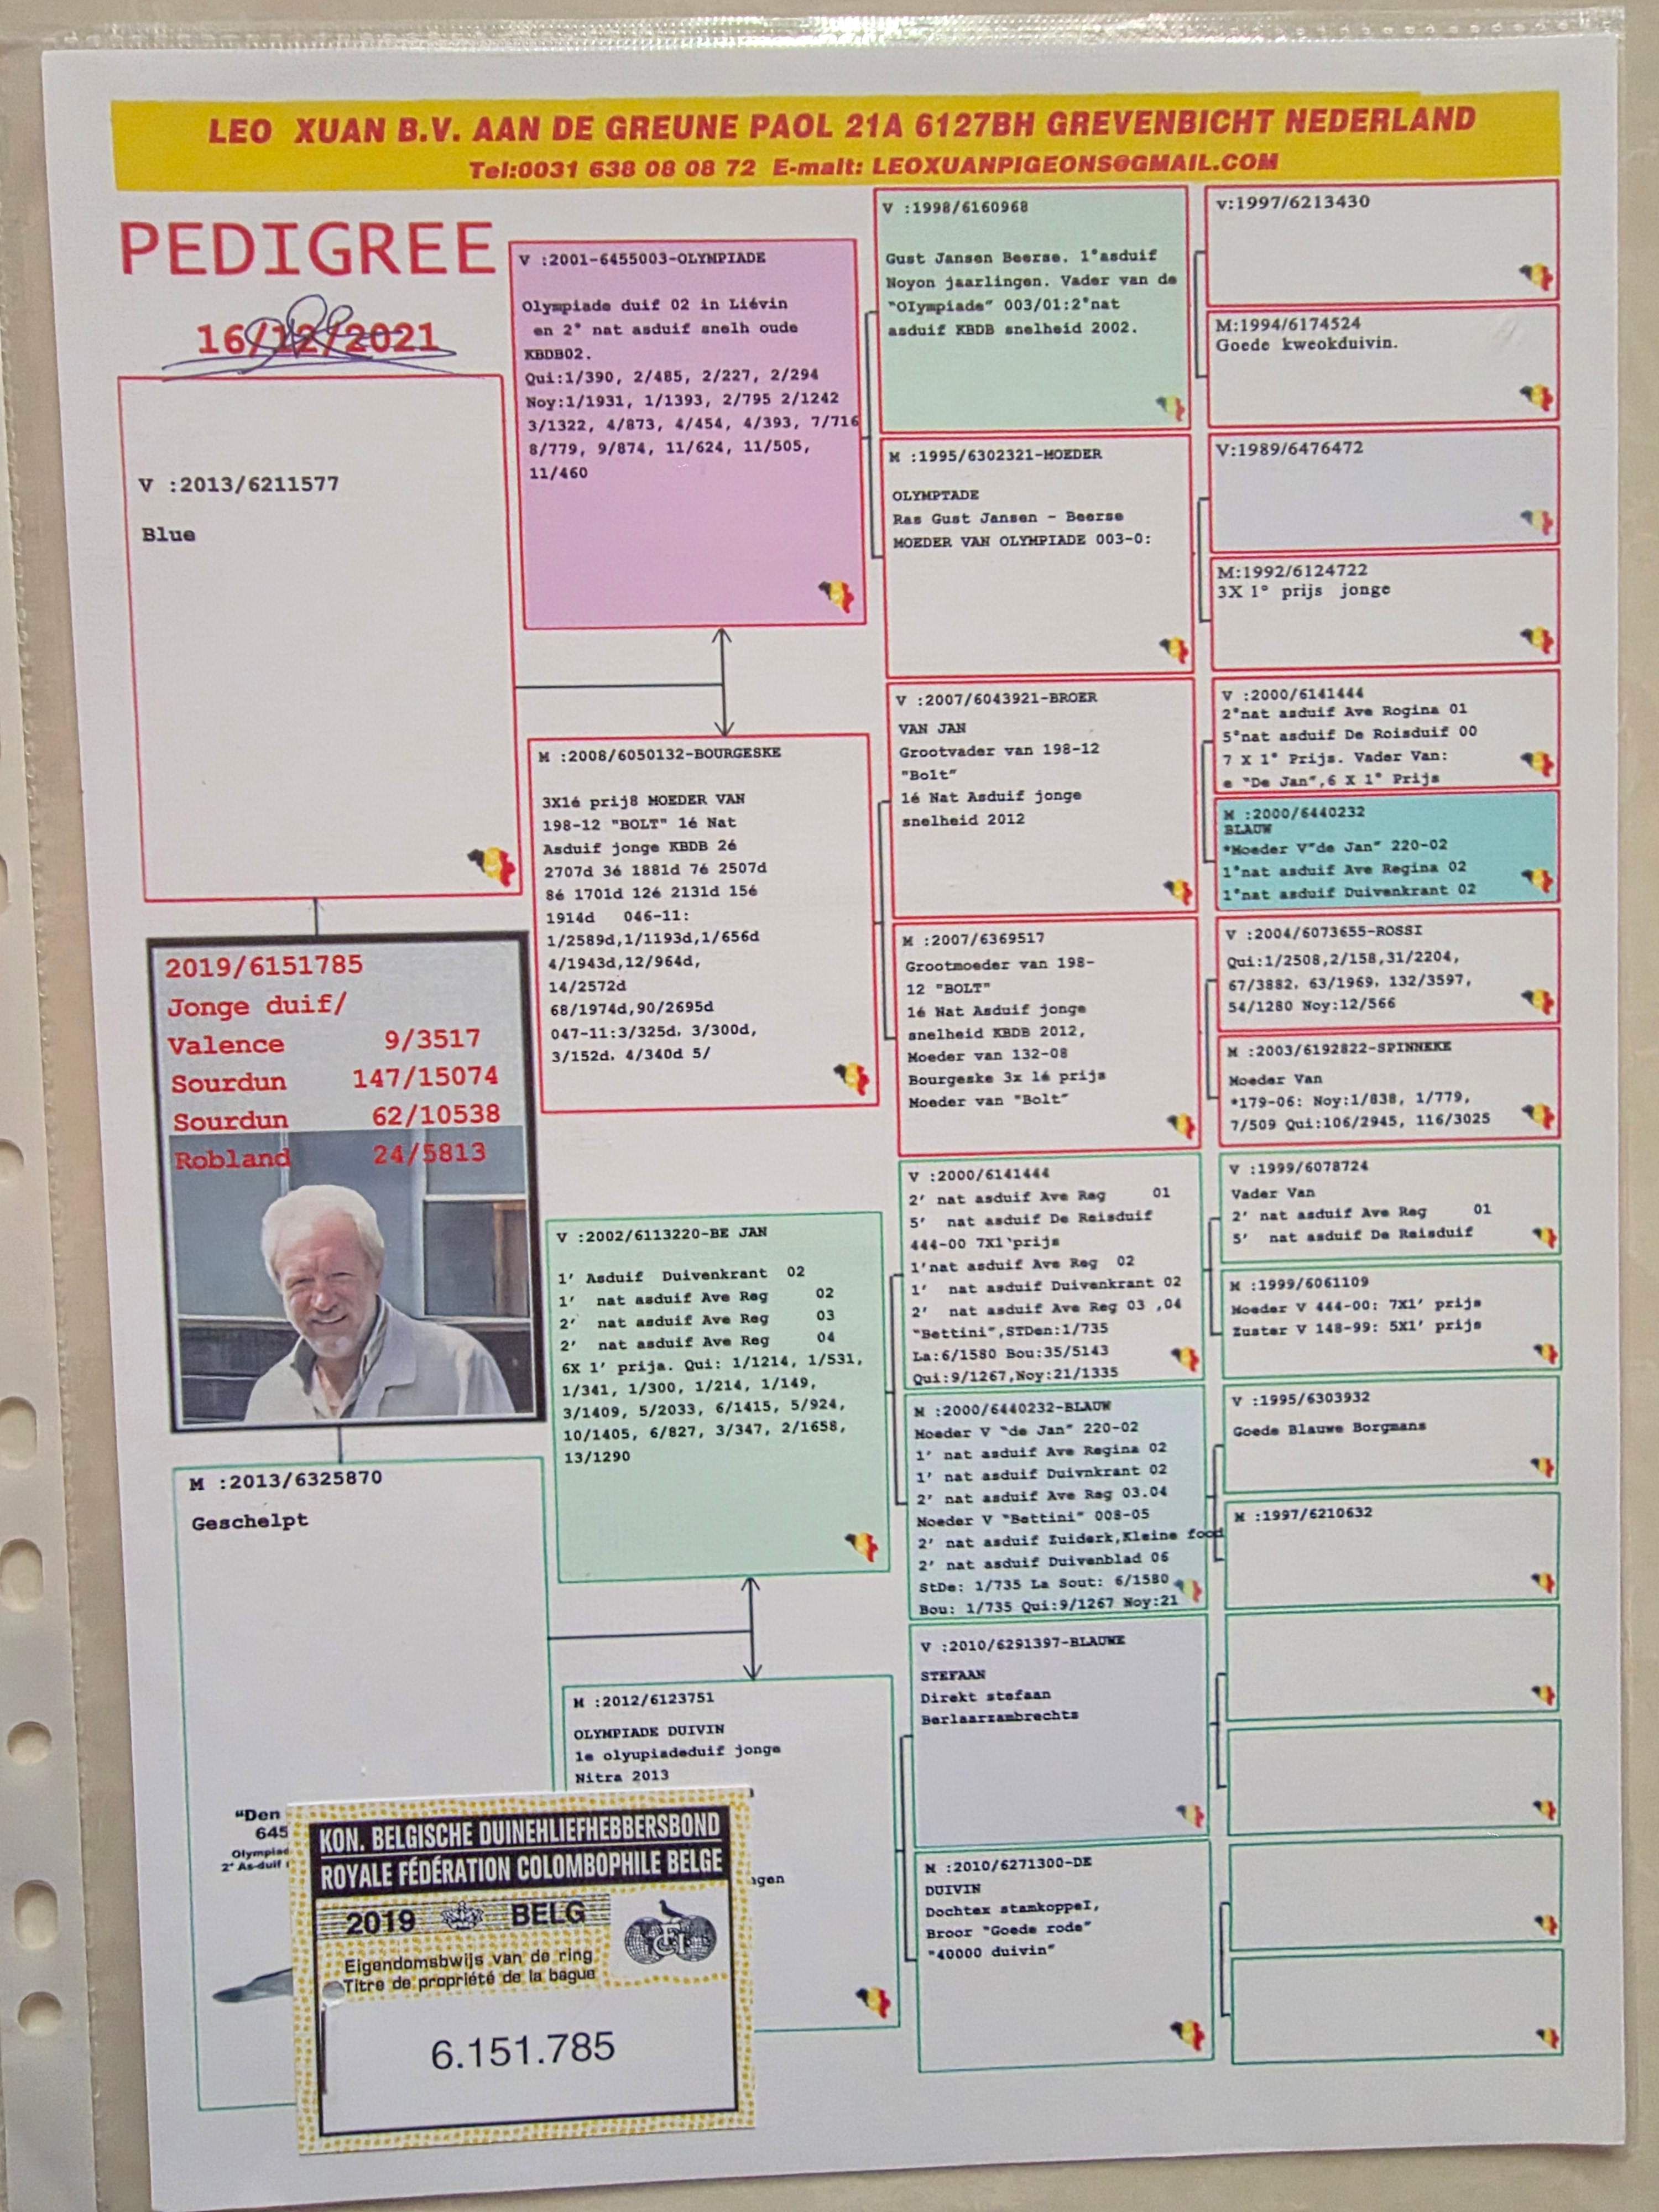 LEO XUAN B.V. AAN DE GREUNE PAOL 21A 6127BH GREVENBICHT NEDERLAND
Tel:0031 638 08 08 72 E-malt: LEOXUANPIGEONS@GMAIL.COM
PEDIGREE
16/12/2021
V :2013/6211577
Blue
2019/6151785
Jonge duif/
Valence 9/3517
Sourdun 147/15074
Sourdun 62/10538
Robland 24/5813
M :2013/6325870
Geschelpt
"Den
645
Olympiad
2° As-duif
V :2001-6455003-OLYMPIADE
Olympiade duif 02 in Liévin
en 2° nat asduif snelh oude
KBDB02.
Qui:1/390, 2/485, 2/227, 2/294
Noy:1/1931, 1/1393, 2/795 2/1242
3/1322, 4/873, 4/454, 4/393, 7/716
8/779, 9/874, 11/624, 11/505,
11/460
M :2008/6050132-BOURGESKE
3X1é prij8 MOEDER VAN
198-12 "BOLT" 1é Nat
Asduif jonge KBDB 2é
2707d 3é 1881d 7é 2507d
8é 1701d 12é 2131d 15é
1914d 046-11:
1/2589d,1/1193d,1/656d
4/1943d,12/964d,
14/2572d
68/1974d,90/2695d
047-11:3/325d, 3/300d,
3/152d, 4/340d 5/
V :2002/6113220-BE JAN
1' Asduif Duivenkrant 02
1' nat asduif Ave Reg 02
2' nat asduif Ave Reg 03
2' nat asduif Ave Reg 04
6X 1' prija. Qui: 1/1214, 1/531,
1/341, 1/300, 1/214, 1/149,
3/1409, 5/2033, 6/1415, 5/924,
10/1405, 6/827, 3/347, 2/1658,
13/1290
M :2012/6123751
OLYMPIADE DUIVIN
1e olyupiadeduif jonge
Nitra 2013
ngen
V :1998/6160968
Gust Jansen Beerse. 1°asduif
Noyon jaarlingen. Vader van de
"OIympiade" 003/01:2°nat
asduif KBDB snelheid 2002.
M :1995/6302321-MOEDER
OLYMPTADE
Ras Gust Jansen - Beerse
MOEDER VAN OLYMPIADE 003-0:
V :2007/6043921-BROER
VAN JAN
Grootvader van 198-12
"Bolt"
1é Nat Asduif jonge
snelheid 2012
M :2007/6369517
Grootmoeder van 198-
12 "BOLT"
1é Nat Asduif jonge
snelheid KBDB 2012,
Moeder van 132-08
Bourgeske 3x 1é prijs
Moeder van "Bolt"
V :2000/6141444
2' nat asduif Ave Rag 01
5' nat asduif De Reisduif
444-00 7X1'prijs
1'nat asduif Ave Reg 02
1' nat asduif Duivenkrant 02
2' nat asduif Ave Reg 03 ,04
"Bettini",STDen:1/735
La:6/1580 Bou:35/5143
Qui:9/1267,Noy:21/1335
M :2000/6440232-BLAUW
Moeder V "de Jan" 220-02
1' nat asduif Ave Regina 02
1' nat asduif Duivnkrant 02
2' nat asduif Ave Rag 03.04
Moeder V "Bettini" 008-05
2' nat asduif Zuiderk,Kleine food
2' nat asduif Duivenblad 06
StDe: 1/735 La Sout: 6/1580
Bou: 1/735 Qui:9/1267 Noy:21
V :2010/6291397-BLAUWE
STEFAAN
Direkt stefaan
Berlaarzambrechts
M :2010/6271300-DE
DUIVIN
Dochtex stamkoppeI,
Broor "Goede rode"
"40000 duivin"
v:1997/6213430
M:1994/6174524
Goede kweokduivin.
V:1989/6476472
M:1992/6124722
3X 1° prijs jonge
V :2000/6141444
2°nat asduif Ave Rogina 01
5°nat asduif De Roisduif 00
7 X 1° Prijs. Vader Van:
e "De Jan",6 X 1° Prijs
M :2000/6440232
BLAUW
*Moeder V"de Jan" 220-02
1°nat asduif Ave Regina 02
1°nat asduif Duivenkrant 02
V :2004/6073655-ROSSI
Qui:1/2508,2/158,31/2204,
67/3882, 63/1969, 132/3597,
54/1280 Noy:12/566
M :2003/6192822-SPINNEKE
Moeder Van
*179-06: Noy:1/838, 1/779,
7/509 Qui:106/2945, 116/3025
V :1999/6078724
Vader Van
2' nat asduif Ave Reg 01
5' nat asduif De Raisduif
M :1999/6061109
Moeder V 444-00: 7X1' prijs
Zuster V 148-99: 5X1' prijs
V :1995/6303932
Goede Blauwe Borgmans
M :1997/6210632
KON. BELGISCHE DUINEHLIEFHEBBERSBOND
ROYALE FÉDÉRATION COLOMBOPHILE BELGE
2019 BELG
Eigendomsbwijs van de ring
Titre de propriété de la bague
6.151.785